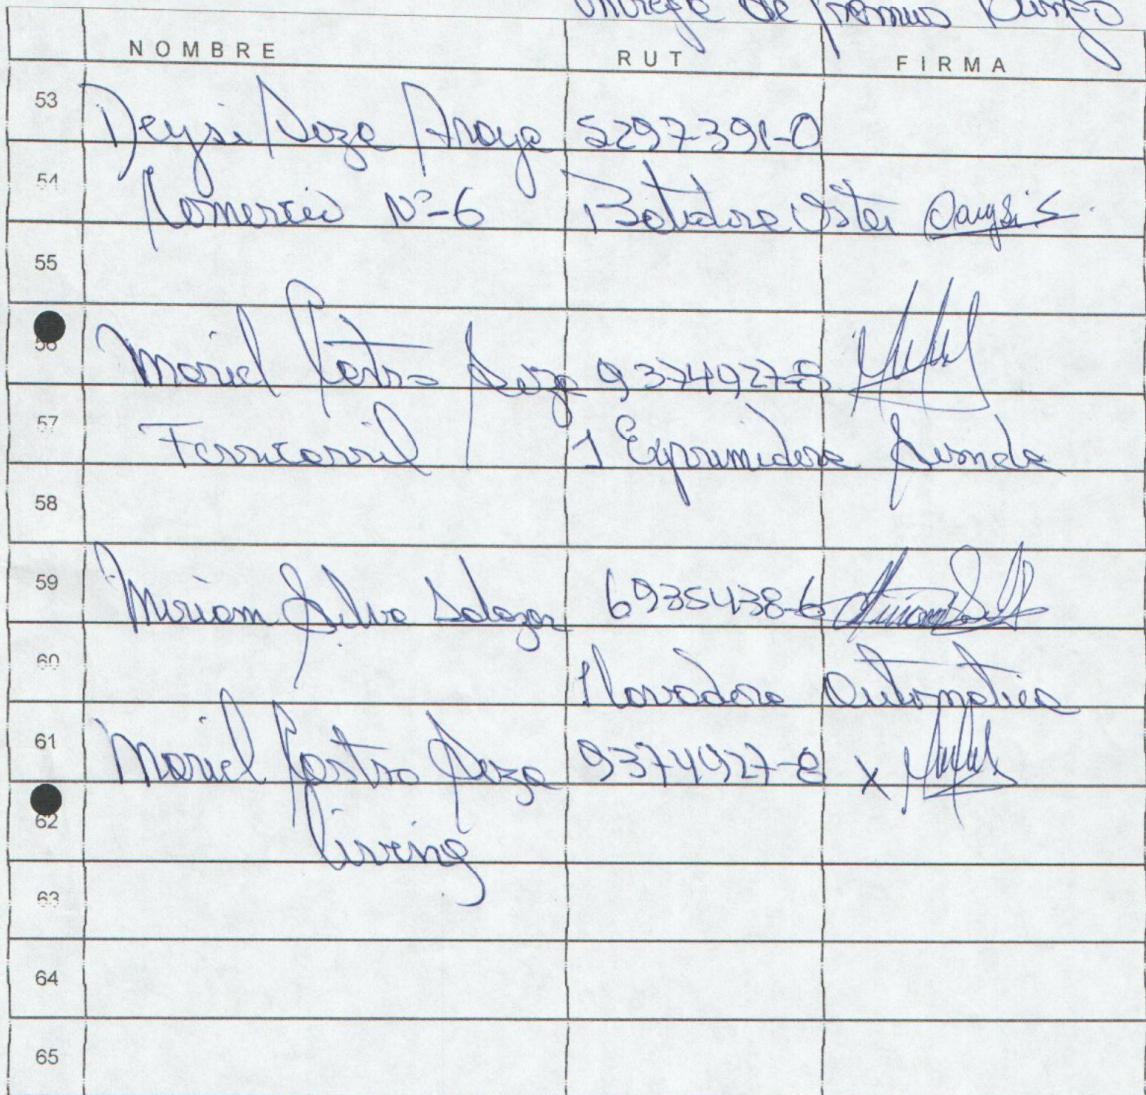 entrega de premios Bingo
NOMBRE RUT FIRMA
53 Deysi Soza Araya 5297391-0
54 Comercio Nº-6 Batidora Oster Daysi S.
55
56 Mariel Castro Soza 9374927-8
57 Ferrocarril 1 Exprimidora Sindelen
58
59 Miriam Silva Salazar 6935438-6 Miriam Silva
60 1 lavadora automatica
61 Mariel Castro Soza 9374927-8 x
62 living
63
64
65